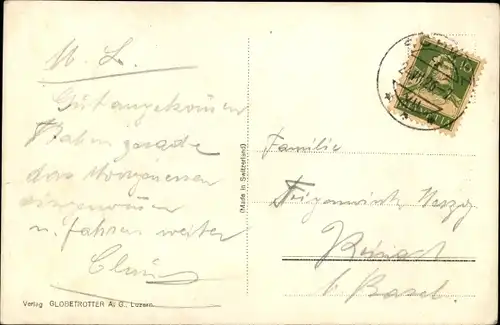 M. L.
Gut angekommen
Haben gerade
das Morgenessen
eingenommen
u. fahren weiter
Verlag GLOBETROTTER A. G., Luzern
(Made in Switzerland)
10
HELVETIA
Familie
Herzog
Reinach
b. Basel.